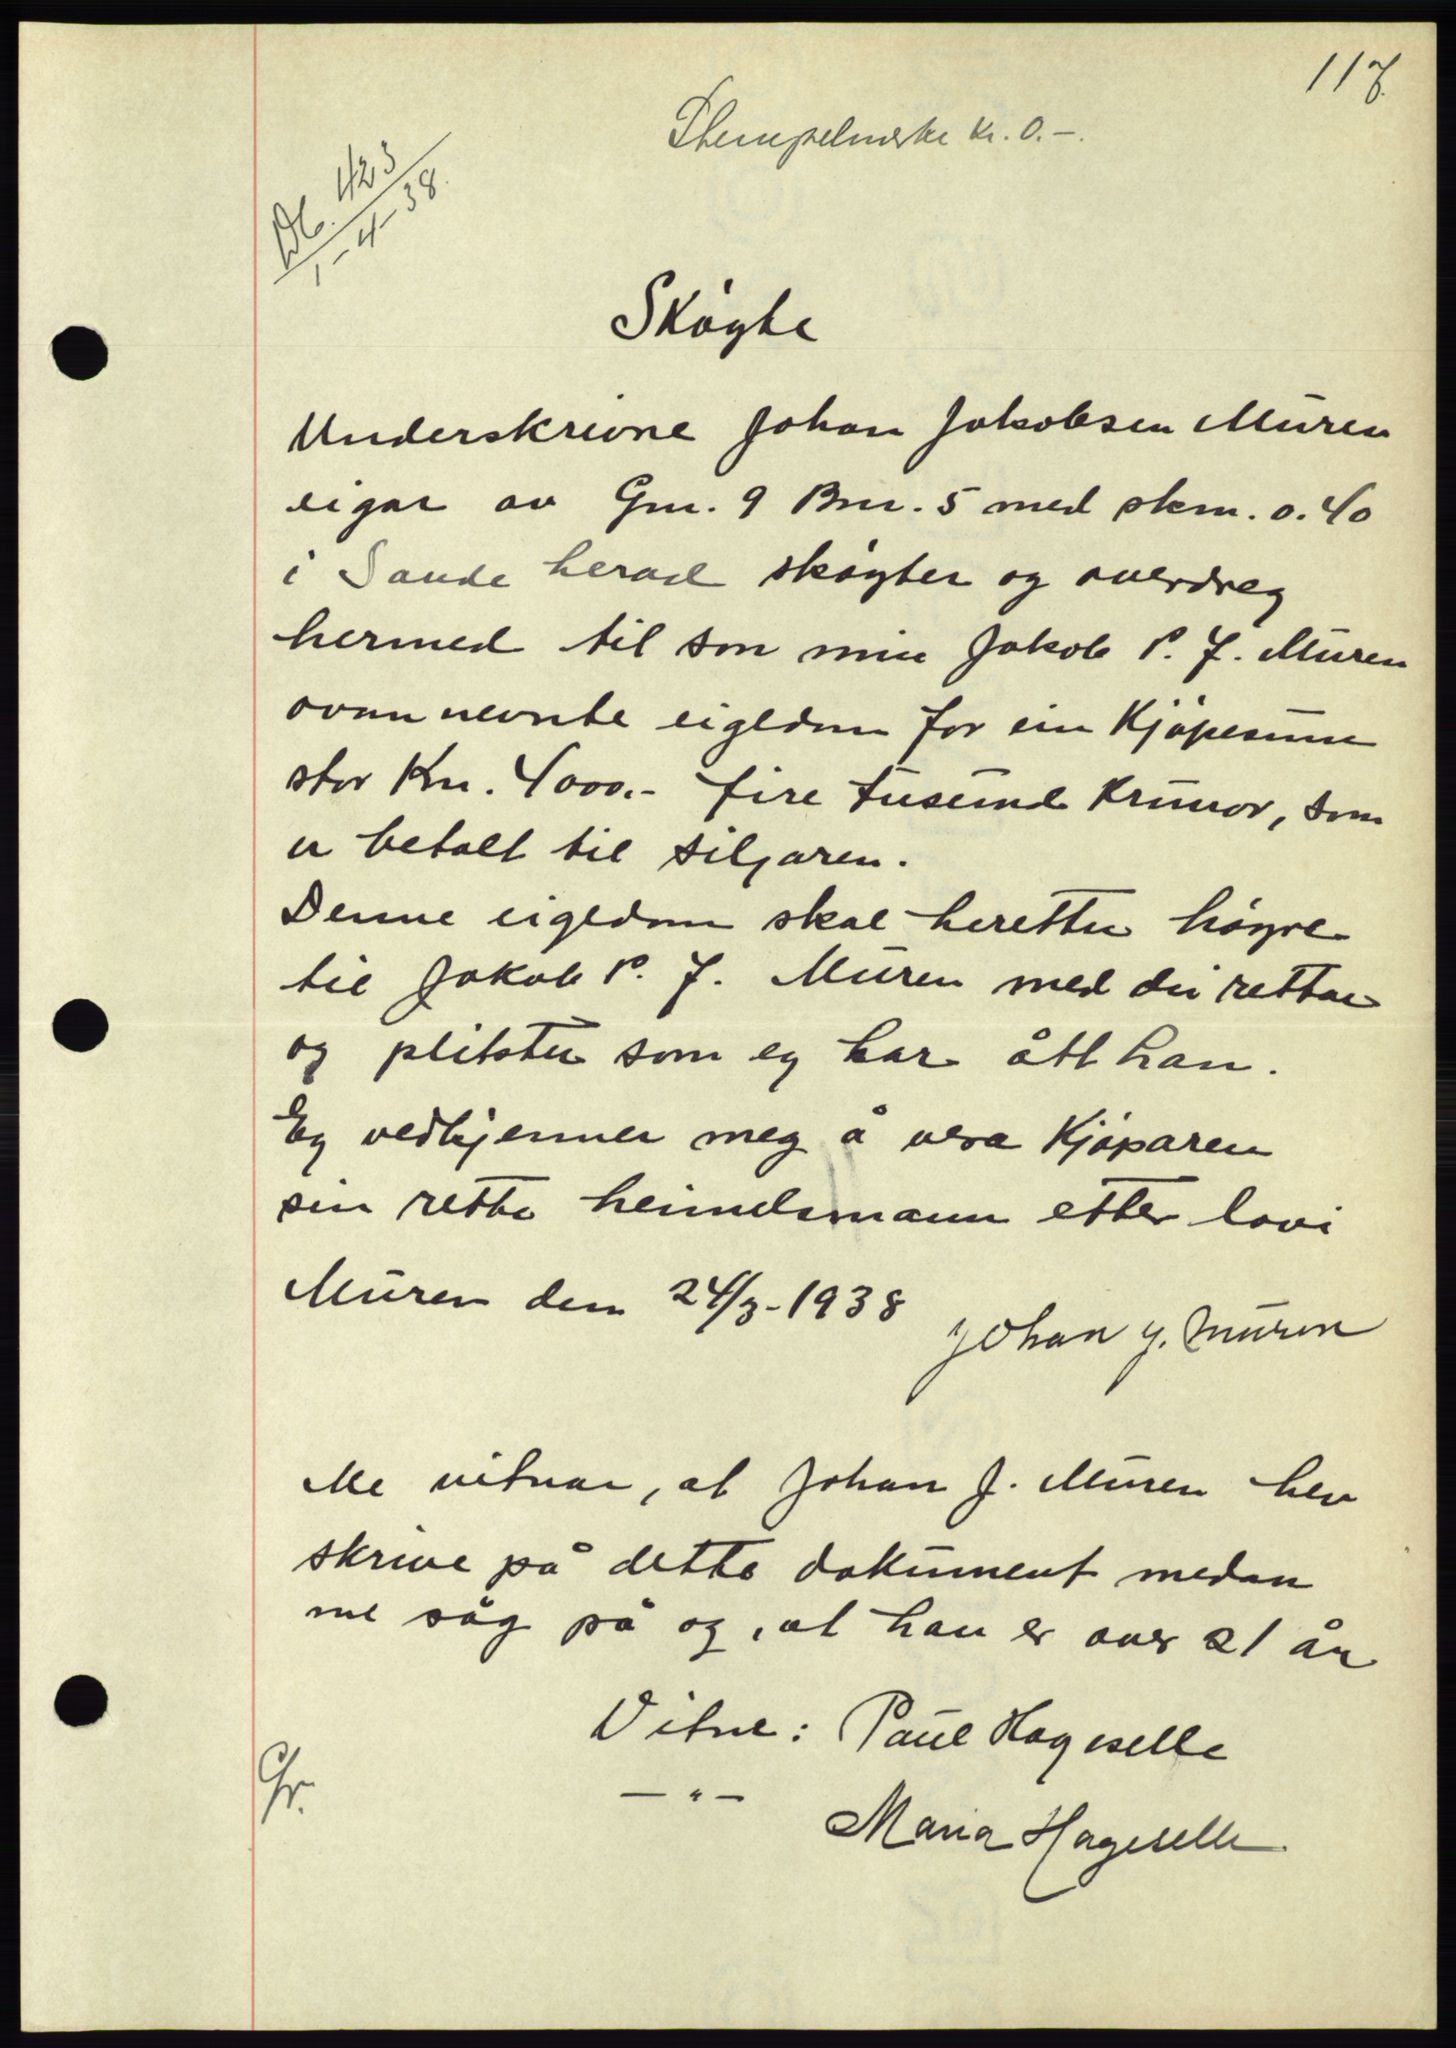 117
Stempelmerke kr. 0.-.
Db. 423
1-4-38.
Skøyte
Underskrivne Johan Jakobsen Muren
eigar av Gnr. 9 Bnr. 5 med skm. 0.40
i Sande herad skøyter og overdreg
hermed til son min Jakob P. J. Muren
ovannevnte eigedom for ein Kjøpesum
stor Kr. 4000.- fire tusund Krunor, som
er betalt til seljaren.
Denne eigedom skal heretter høyre
til Jakob P. J. Muren med dei rettar
og plikter som eg har ått han.
Eg vedkjenner meg å vera Kjøparen
sin rette heimelsmann etter lovi
Muren den 24/3-1938
Johan J. Muren
Me vitnar, at Johan J. Muren hev
skrive på dette dokument medan
me såg på og, at han er over 21 år
Vitne: Paul Hageselle
— " —
Maria Hageselle
Gr.